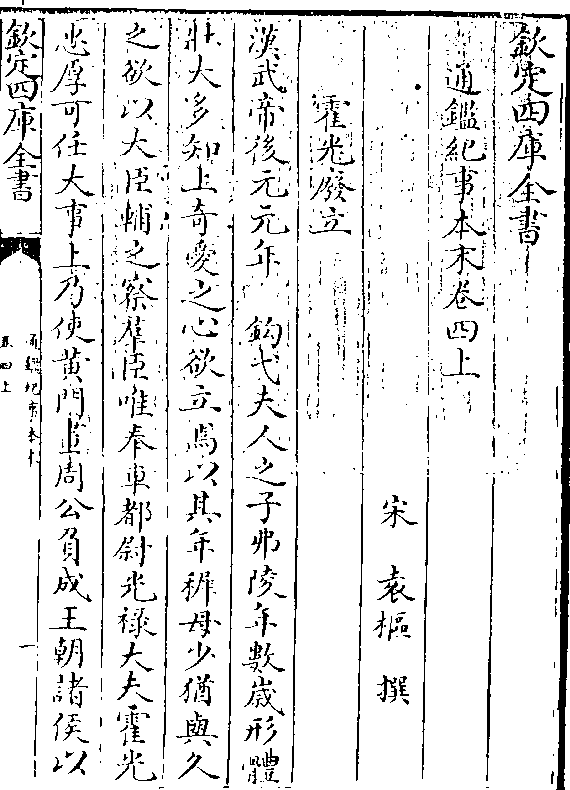 欽定四庫全書
通鑑紀事本末卷四上
宋 袁樞 撰
霍光廢立
漢武帝後元元年 鈎弋夫人之子弗陵年數歲形體
壯大多知上奇愛之心欲立焉以其年穉母少猶與久
之欲以大臣輔之察羣臣唯奉車都尉光祿大夫霍光
忠厚可任大事上乃使黃門畫周公負成王朝諸侯以
欽定四庫全書
通鑑紀事本末
卷四上
一